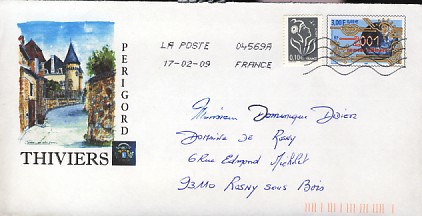 PERIGORD
THIVIERS
LA POSTE 04569A
17-02-09 FRANCE
0,10€
3,00F
2001
Monsieur Dominique Didier
Domaine de Rosny
6 Rue Edmond Michelet
93110 Rosny sous Bois